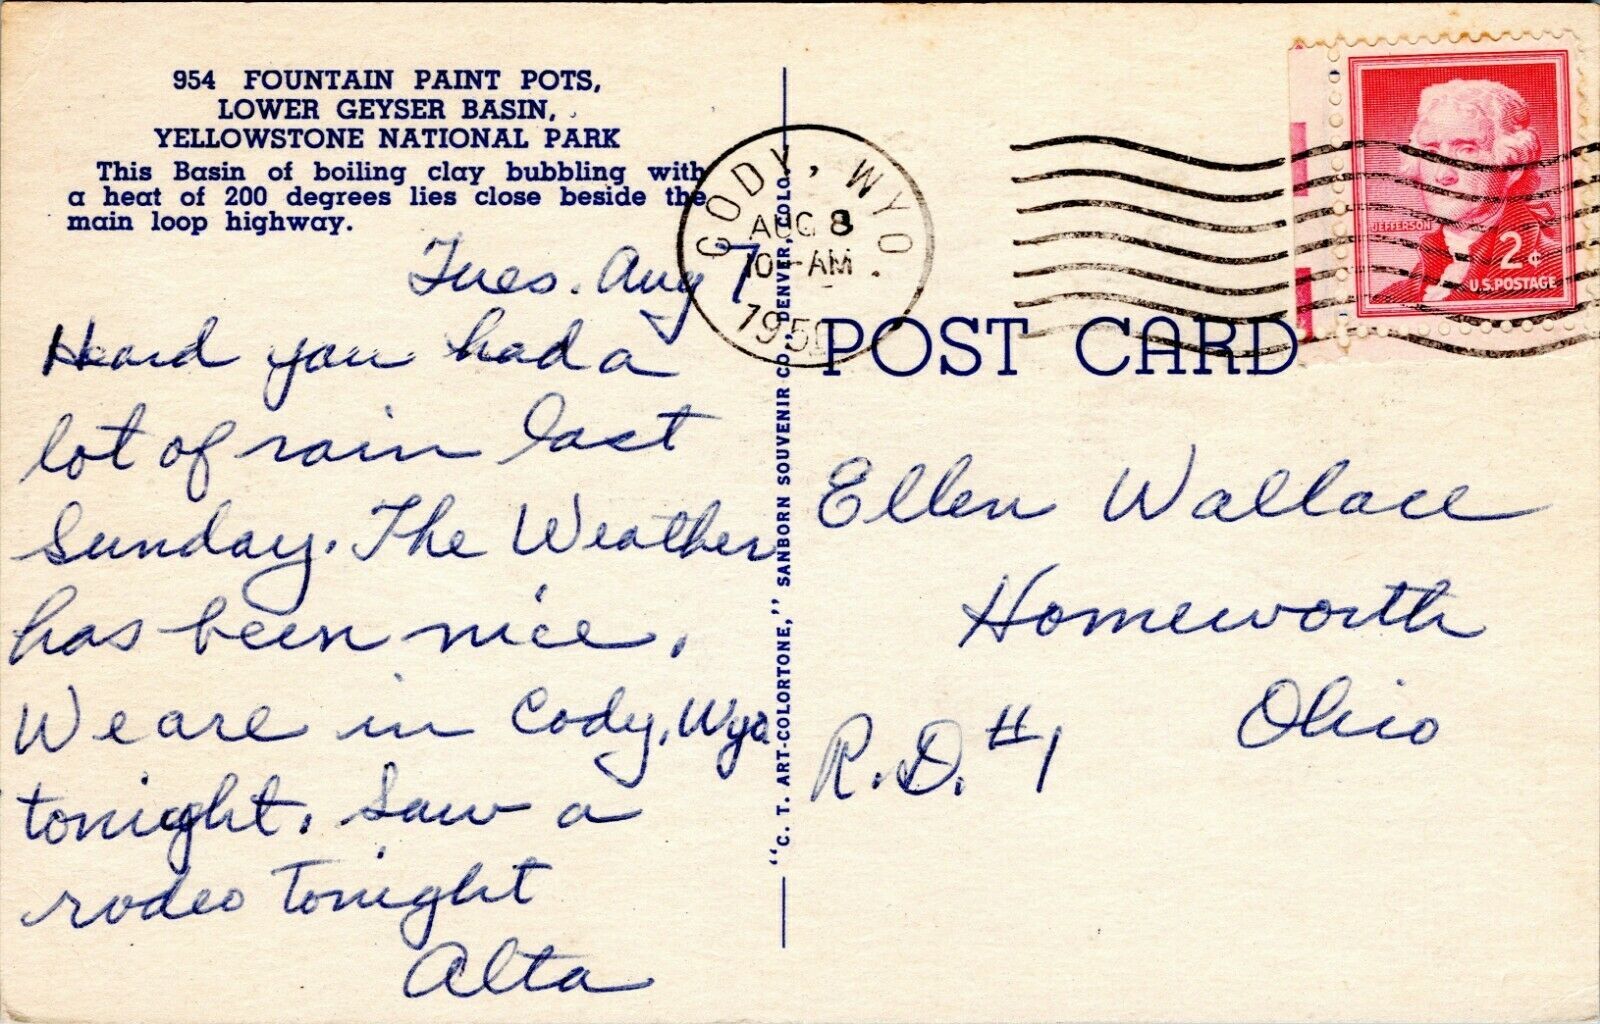 954 FOUNTAIN PAINT POTS,
LOWER GEYSER BASIN,
YELLOWSTONE NATIONAL PARK
This Basin of boiling clay bubbling with
a heat of 200 degrees lies close beside the
main loop highway.
Tues. Aug 7
Heard you had a
lot of rain last
Sunday. The Weather
has been nice.
We are in Cody, Wyo.
tonight. Saw a
rodeo tonight
Alta
"C. T. ART-COLORTONE," SANBORN SOUVENIR CO., DENVER, COLO.
CODY, WYO.
AUG 8
10-AM
POST CARD
JEFFERSON
2¢
U.S. POSTAGE
Ellen Wallace
Homeworth
Ohio
R.D. #1